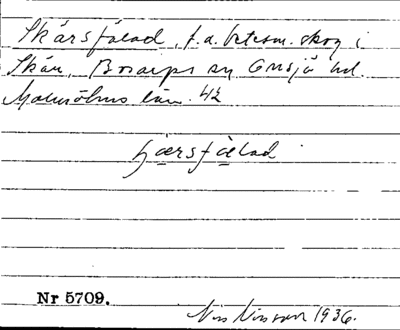 Skärsfälad, f.d. betesm. skog i
Skär, Bosarps sn Onsjö hd.
Malmöhus län. 42
hærsfælad
Nr 5709.
Nils Nilsson 1936.